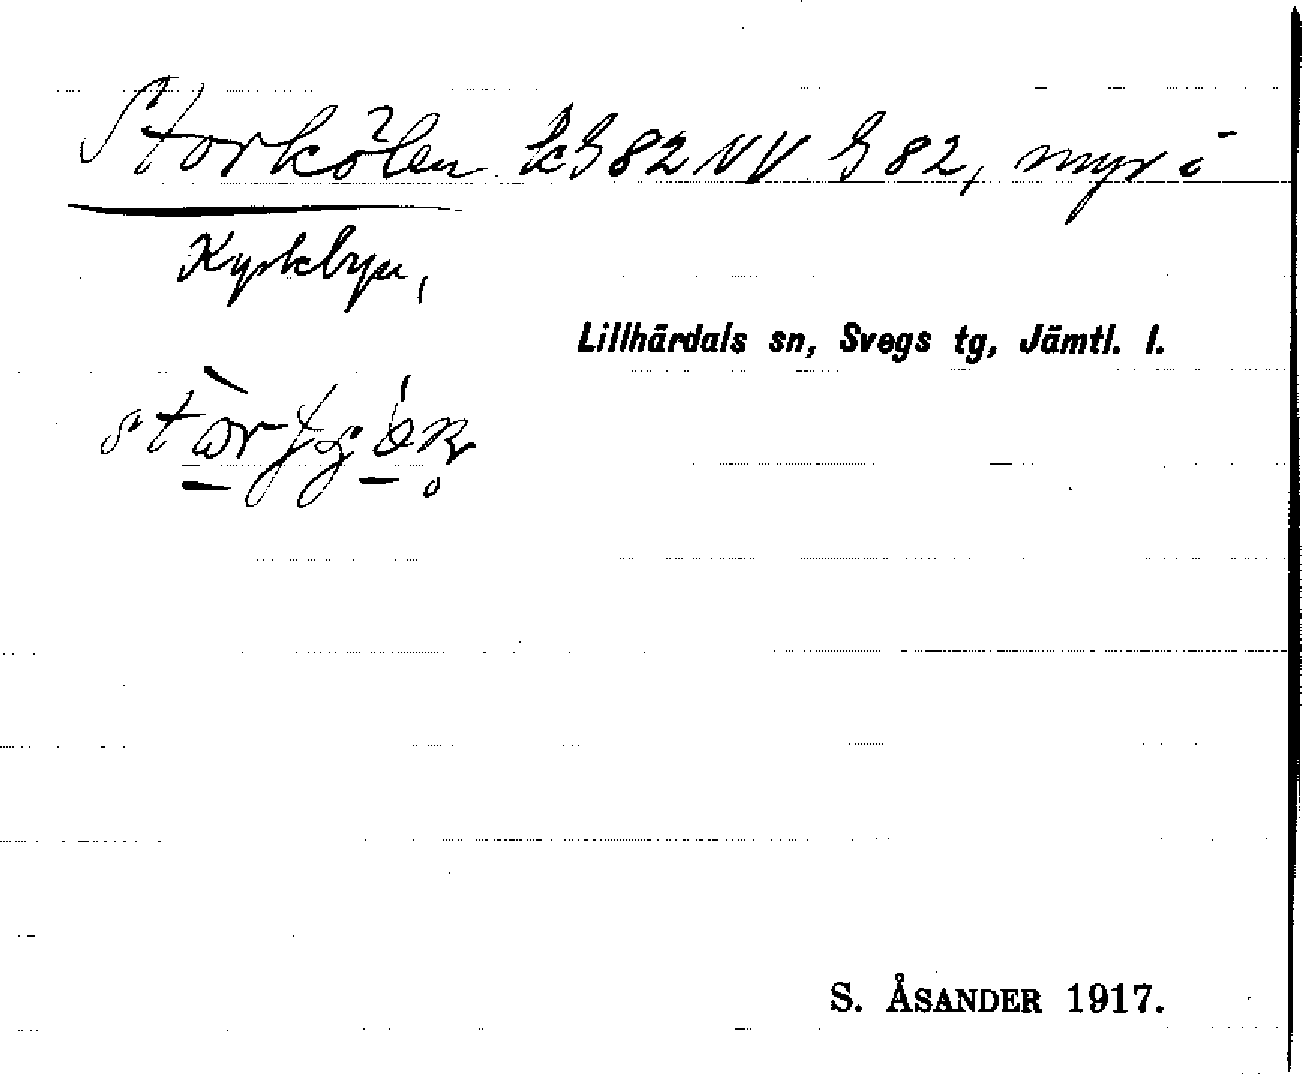 Storkölen kG82NV G82, myr i
Kyrkbyn,
Lillhärdals sn, Svegs tg, Jämtl. l.
S. ÅSANDER 1917.